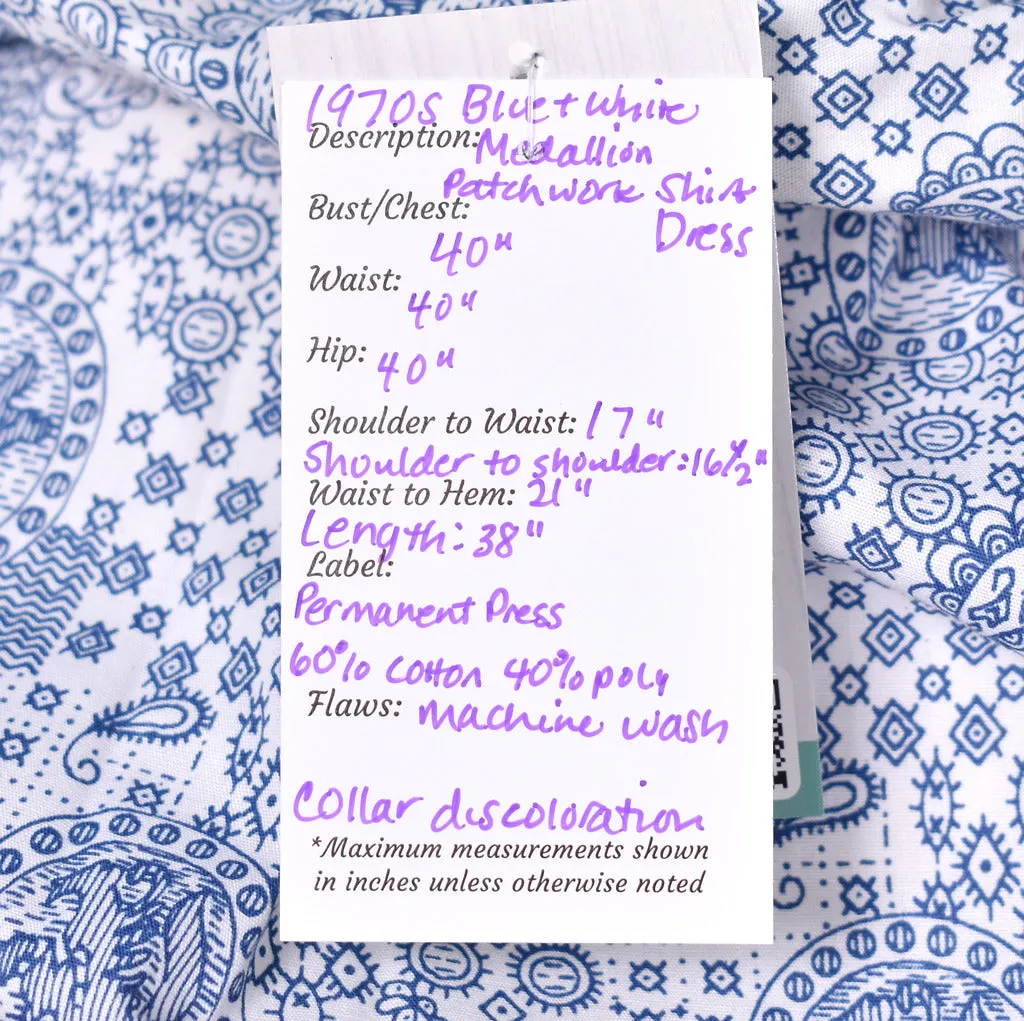 1970s Blue + white
Description: Medallion
Patchwork Shirt
Bust/Chest: Dress
40"
Waist: 40"
Hip: 40"
Shoulder to Waist: 17"
Shoulder to shoulder: 16 1/2"
Waist to Hem: 21"
Length: 38"
Label:
Permanent Press
60% cotton 40% poly
Flaws: machine wash
Collar discoloration
*Maximum measurements shown
in inches unless otherwise noted